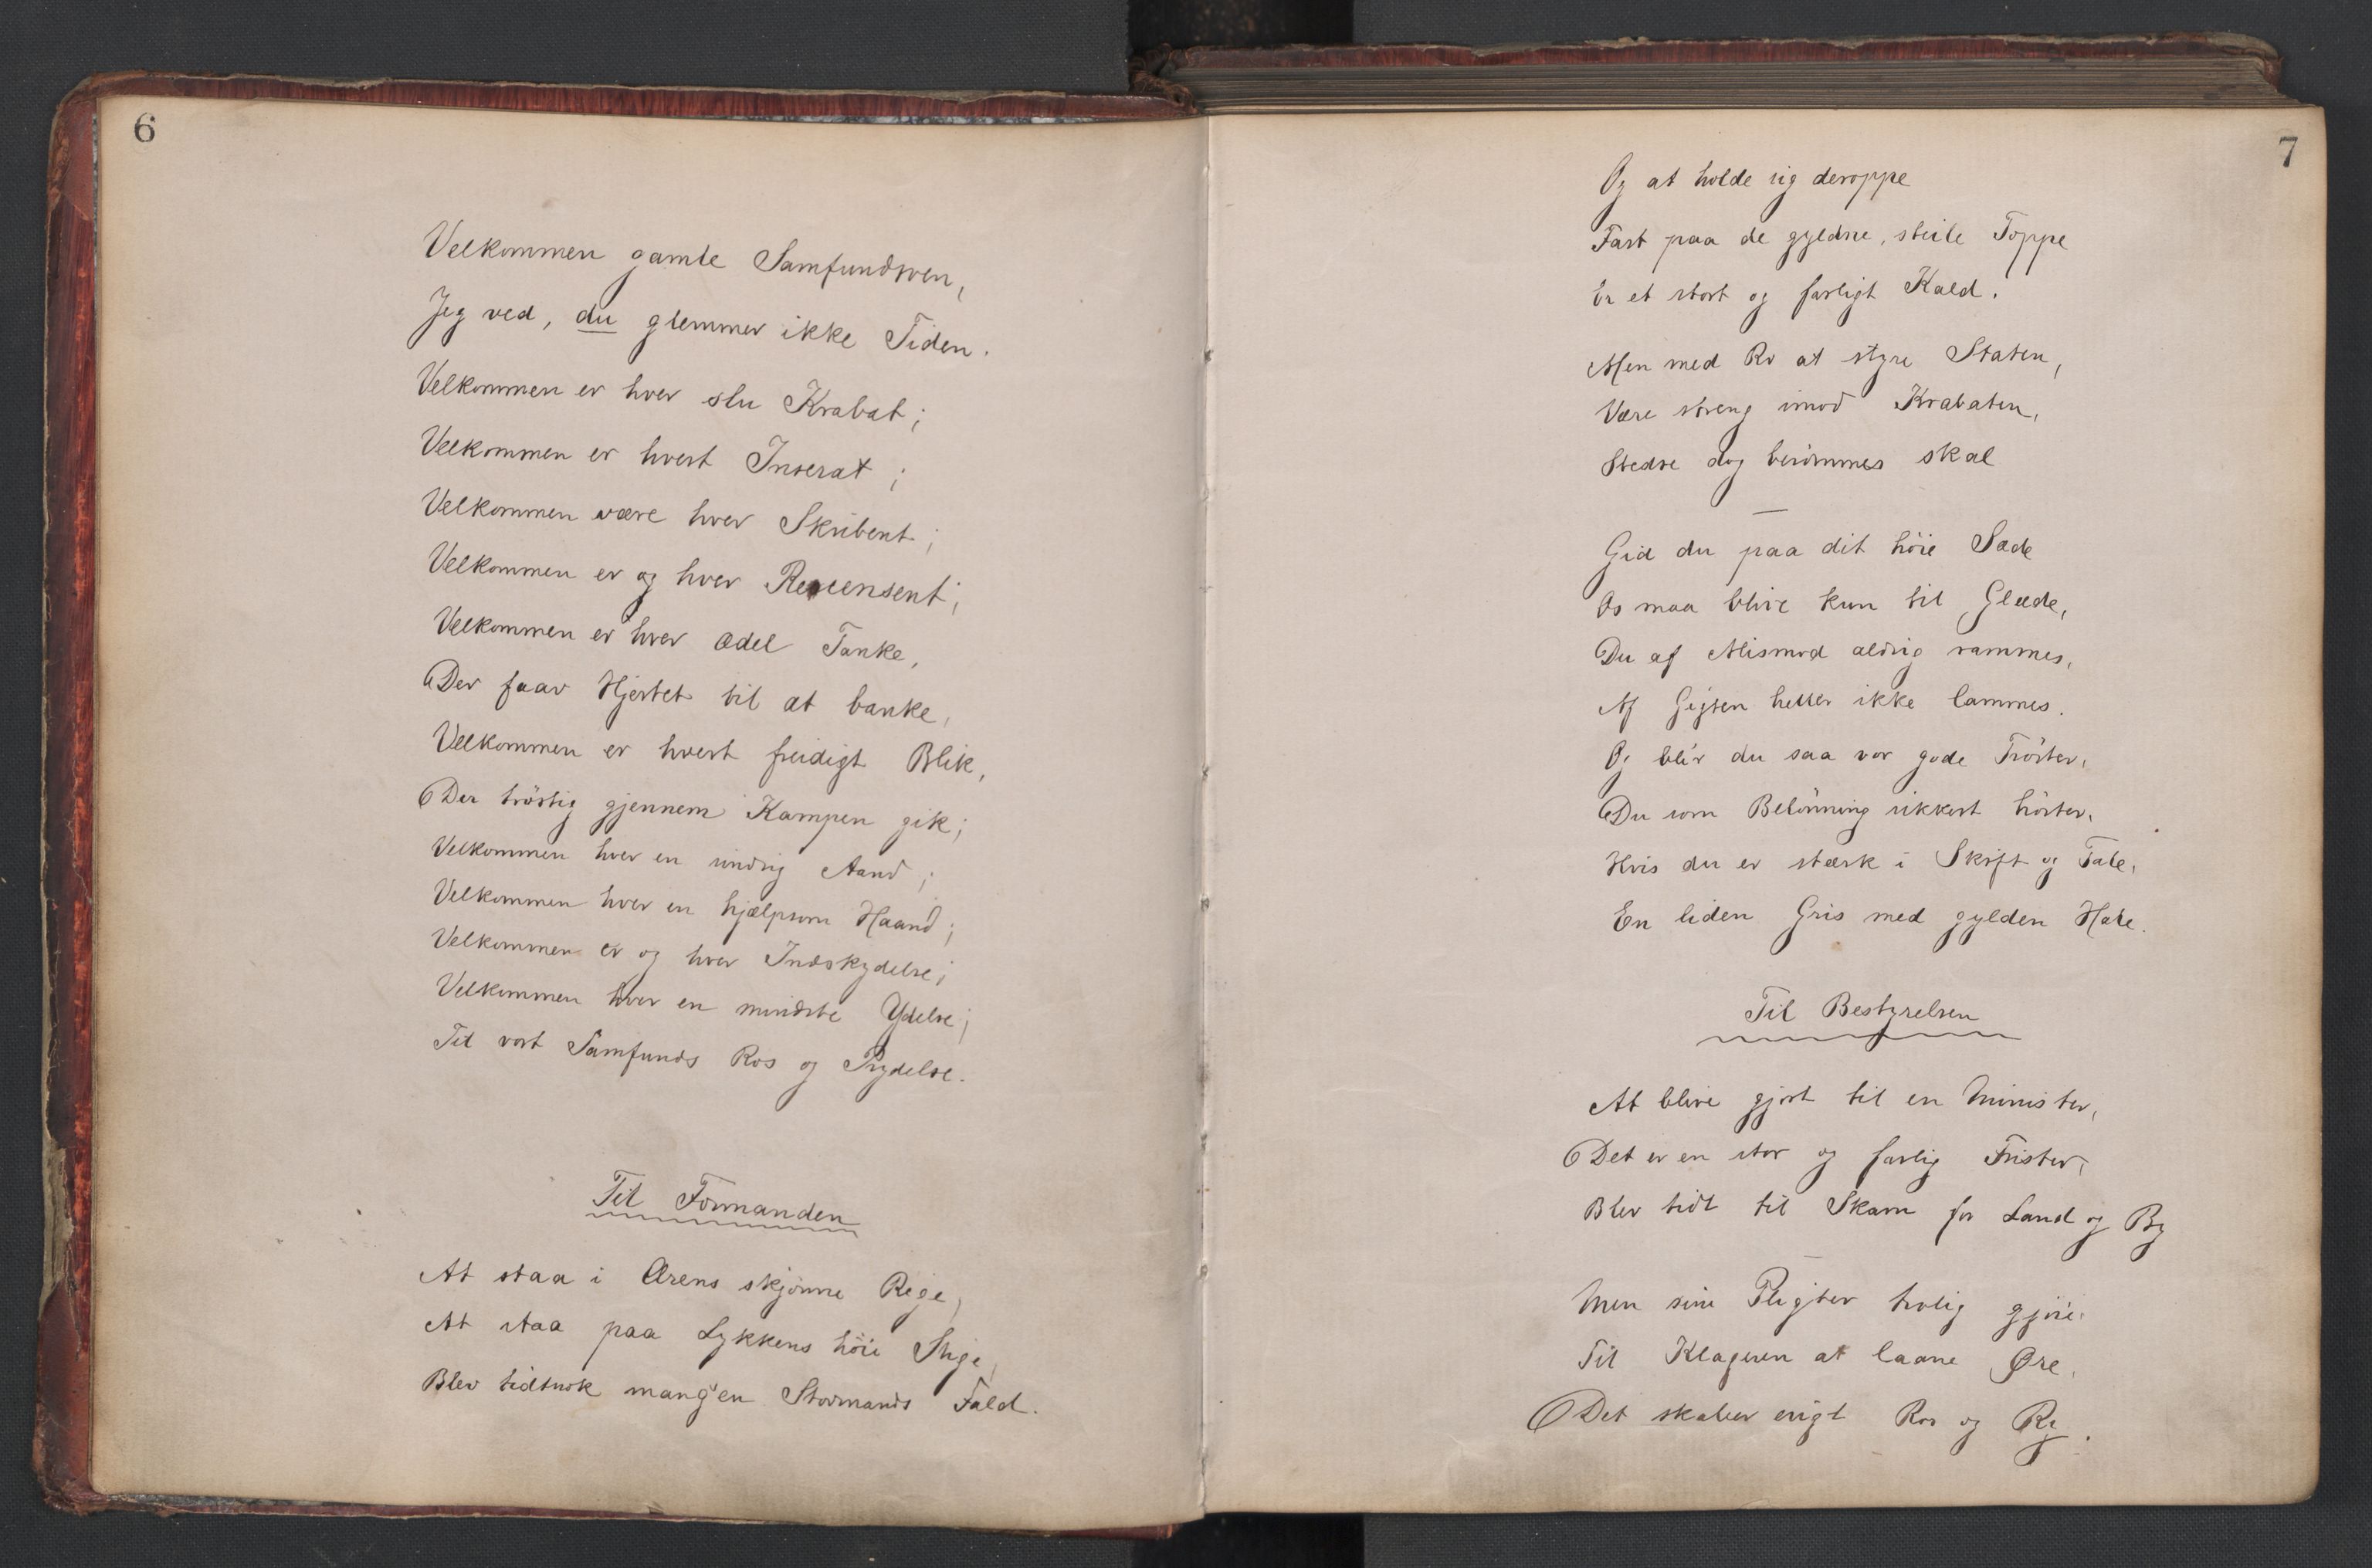 6
Velkommen gamle Samfundsven,
Jeg ved, du glemmer ikke Tiden.
Velkommen er hver slu Krabat;
Velkommen er hvert Inserat;
Velkommen være hver Skribent;
Velkommen er og hver Recensent;
Velkommen er hver ædel Tanke,
Der faar Hjertet til at banke,
Velkommen er hvert freidigt Blik,
Der trøstig gjennem Kampen gik;
Velkommen hver en sindrig Aand;
Velkommen hver en hjælpsom Haand;
Velkommen er og hver Indskydelse;
Velkommen hver en mindste Ydelse;
Til vort Samfunds Ros og Prydelse.
Til Formanden
At staa i Ærens skjønne Rige,
At staa paa Lykkens höie Stige,
Blev tidtnok mang'en Stormands Fald.
7
Og at holde sig deroppe
Fast paa de gyldne, steile Toppe
Er et stort og farligt Kald.
Men med Ro at styre Staten,
Være streng imod Krabaten,
Stedse dog berömmes skal
Gid du paa dit höie Sæde
Os maa blive kun til Glæde,
Du af Mismod aldrig rammes,
Af Gigten heller ikke lammes.
Og bli'r du saa vor gode Tröster,
Du som Belönning sikkert höster,
Hvis du er stærk i Skrift og Tale,
En liden Gris med gylden Hale.
Til Bestyrelsen
At blive gjort til en Minister,
Det er en stor og farlig Frister,
Blev tidt til Skam for Land og By
Men sine Pligter trolig gjöre,
Til Klageren at laane Øre,
Det skaber evigt Ros og Ry.